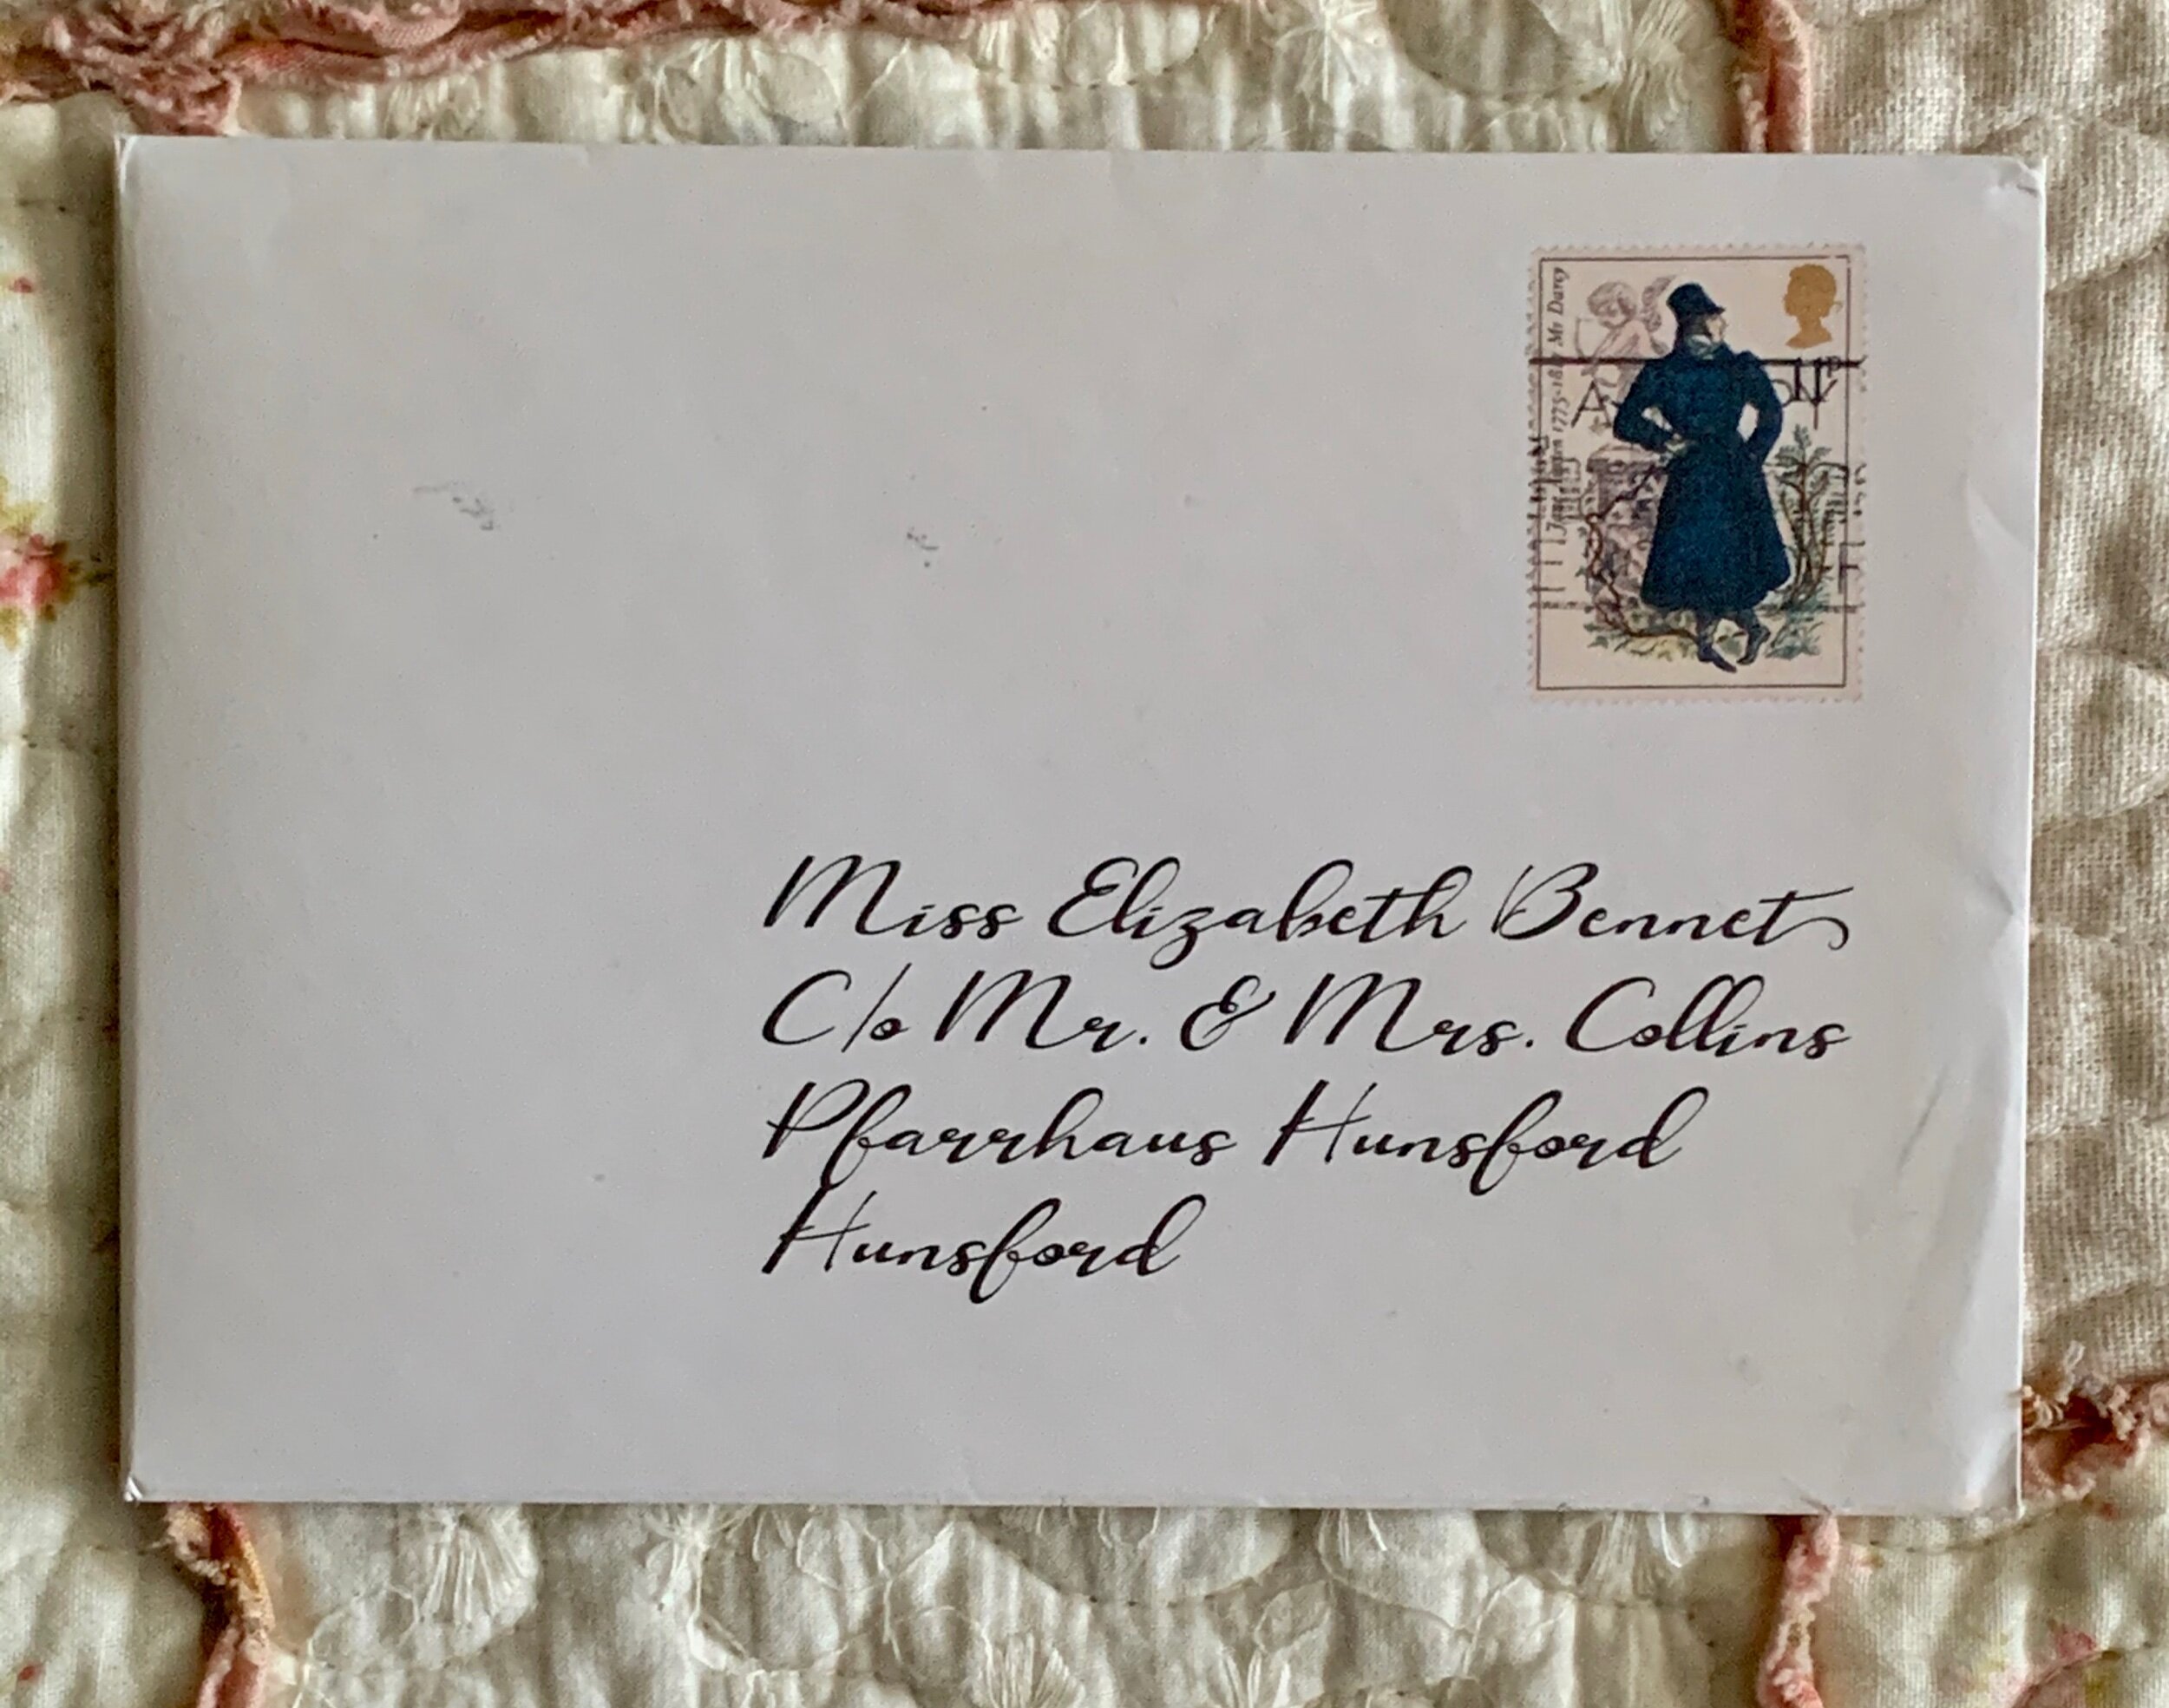 Mr Darcy
11p
Miss Elizabeth Bennet
C/o Mr. & Mrs. Collins
Pfarrhaus Hunsford
Hunsford